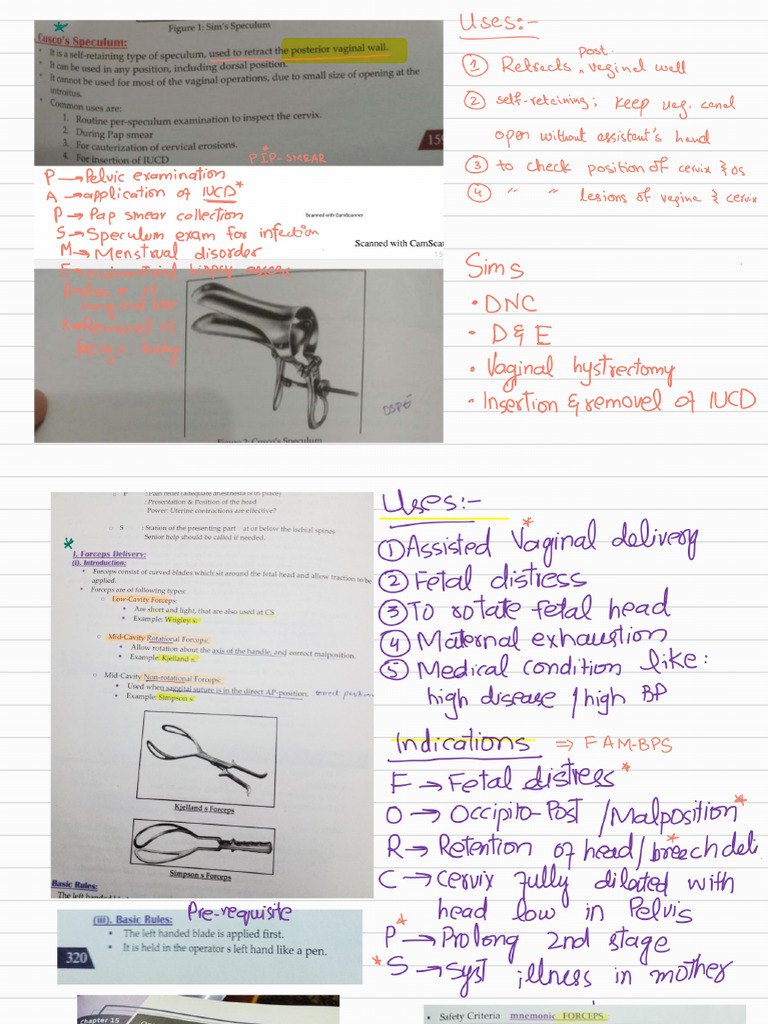 Figure 1: Sim's Speculum
Cusco's Speculum:
• It is a self-retaining type of speculum, used to retract the posterior vaginal wall.
• It can be used in any position, including dorsal position.
• It cannot be used for most of the vaginal operations, due to small size of opening at the
introitus.
• Common uses are:
1. Routine per-speculum examination to inspect the cervix.
2. During Pap smear
3. For cauterization of cervical erosions.
4. For insertion of IUCD
PIP-SMEAR
P → Pelvic examination
A → application of IUCD*
P → Pap smear collection
S → Speculum exam for infection
M → Menstrual disorder
Scanned with CamScanner
Scanned with CamScan
15
E → endometrial biopsy
vaginal
R → Removal of
feign body
OSPE
Figure 2: Cusco's Speculum
Uses:-
① Retracts post. veginal wall
② self-retaining; keep vag. canal
open without assistant's hand
③ to check position of cervix & os
④ " " lesions of vegina & cervix
Sims
• DNC
• D & E
• Vaginal hystrectomy
• Insertion & removel of IUCD
o P : Pain relief (adequate anesthesia is in place)
: Presentation & Position of the head
Power: Uterine contractions are effective?
o S : Station of the presenting part at or below the ischial spines
Senior help should be called if needed.
I. Forceps Delivery:
(i). Introduction:
• Forceps consist of curved blades which sit around the fetal head and allow traction to be
applied.
• Forceps are of following types:
o Low-Cavity Forceps:
• Are short and light, that are also used at CS
• Example: Wrigley s.
o Mid-Cavity Rotational Forceps:
• Allow rotation about the axis of the handle, and correct malposition.
• Example: Kjelland s.
o Mid-Cavity Non-rotational Forceps:
• Used when saggital suture is in the direct AP-position.
• Example: Simpson s
Kjelland s Forceps
Simpson s Forceps
Basic Rules:
The left handed
(iii). Basic Rules: Pre-requisite
• The left handed blade is applied first.
• It is held in the operator s left hand like a pen.
320
Uses:-
① Assisted Vaginal delivery
② Fetal distress
③ To rotate fetal head
④ Maternal exhaustion
⑤ Medical condition like:
high disease / high BP
Indications ⇒ FAM-BPS
F → Fetal distress*
O → Occipito-Post / Malposition*
R → Retention of head / breech deli
C → Cervix fully dilated with
head low in Pelvis
P → Prolong 2nd stage
S → Syst illness in mother
Chapter 15
• Safety Criteria mnemonic FORCEPS